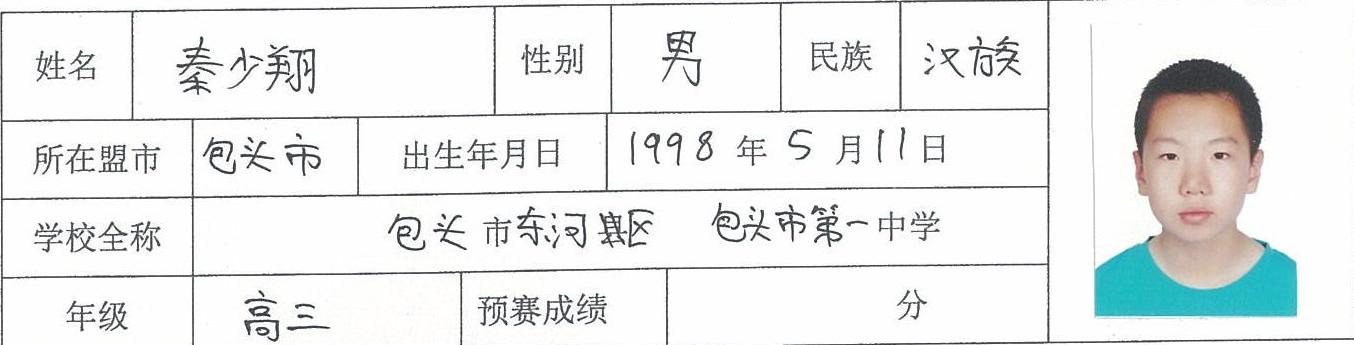 姓名 秦少翔 性别 男 民族 汉族
所在盟市 包头市 出生年月日 1998 年 5 月 11 日
学校全称 包头市东河县区 包头市第一中学
年级 高三 预赛成绩 分